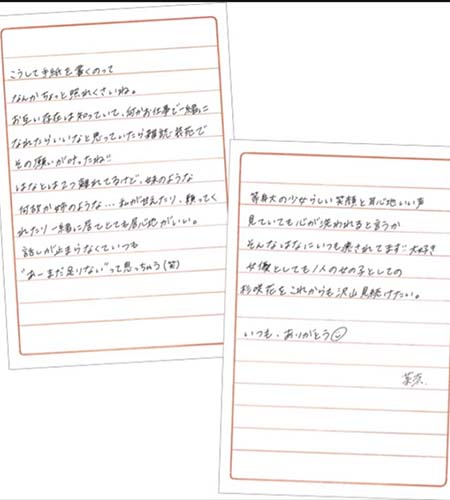 こうして手紙を書くのって
なんかちょっと照れくさいね。
お互い存在は知っていて、何かお仕事で一緒に
なれたらいいなと思っていたら雑誌装苑で
その願いが叶ったね!!
はなとは2つ離れてるけど、妹のような
何故か姉のような…私が甘えたり、頼ってく
れたり一緒に居てとても居心地がいい。
話しが止まらなくていつも
"あーまだ足りない"って思っちゃう(笑)
等身大の少女らしい笑顔と耳心地いい声
見ていても心が洗われると言うか
そんなはなにいつも癒されてます!!大好き
女優としても1人の女の子としての
杉咲花をこれからも沢山見続けたい。
いつも、ありがとう
菜奈.